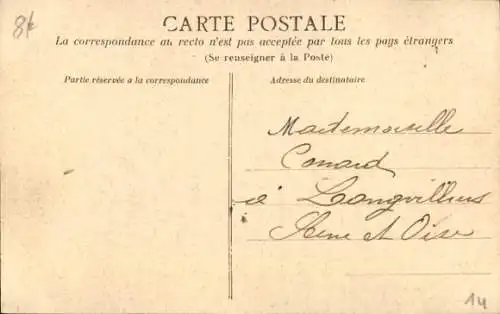 8k
CARTE POSTALE
La correspondance au recto n'est pas acceptée par tous les pays étrangers
(Se renseigner à la Poste)
Partie réservée a la correspondance
Adresse du destinataire
Mademoiselle
Conard
à Longvilliers
Seine et Oise
14